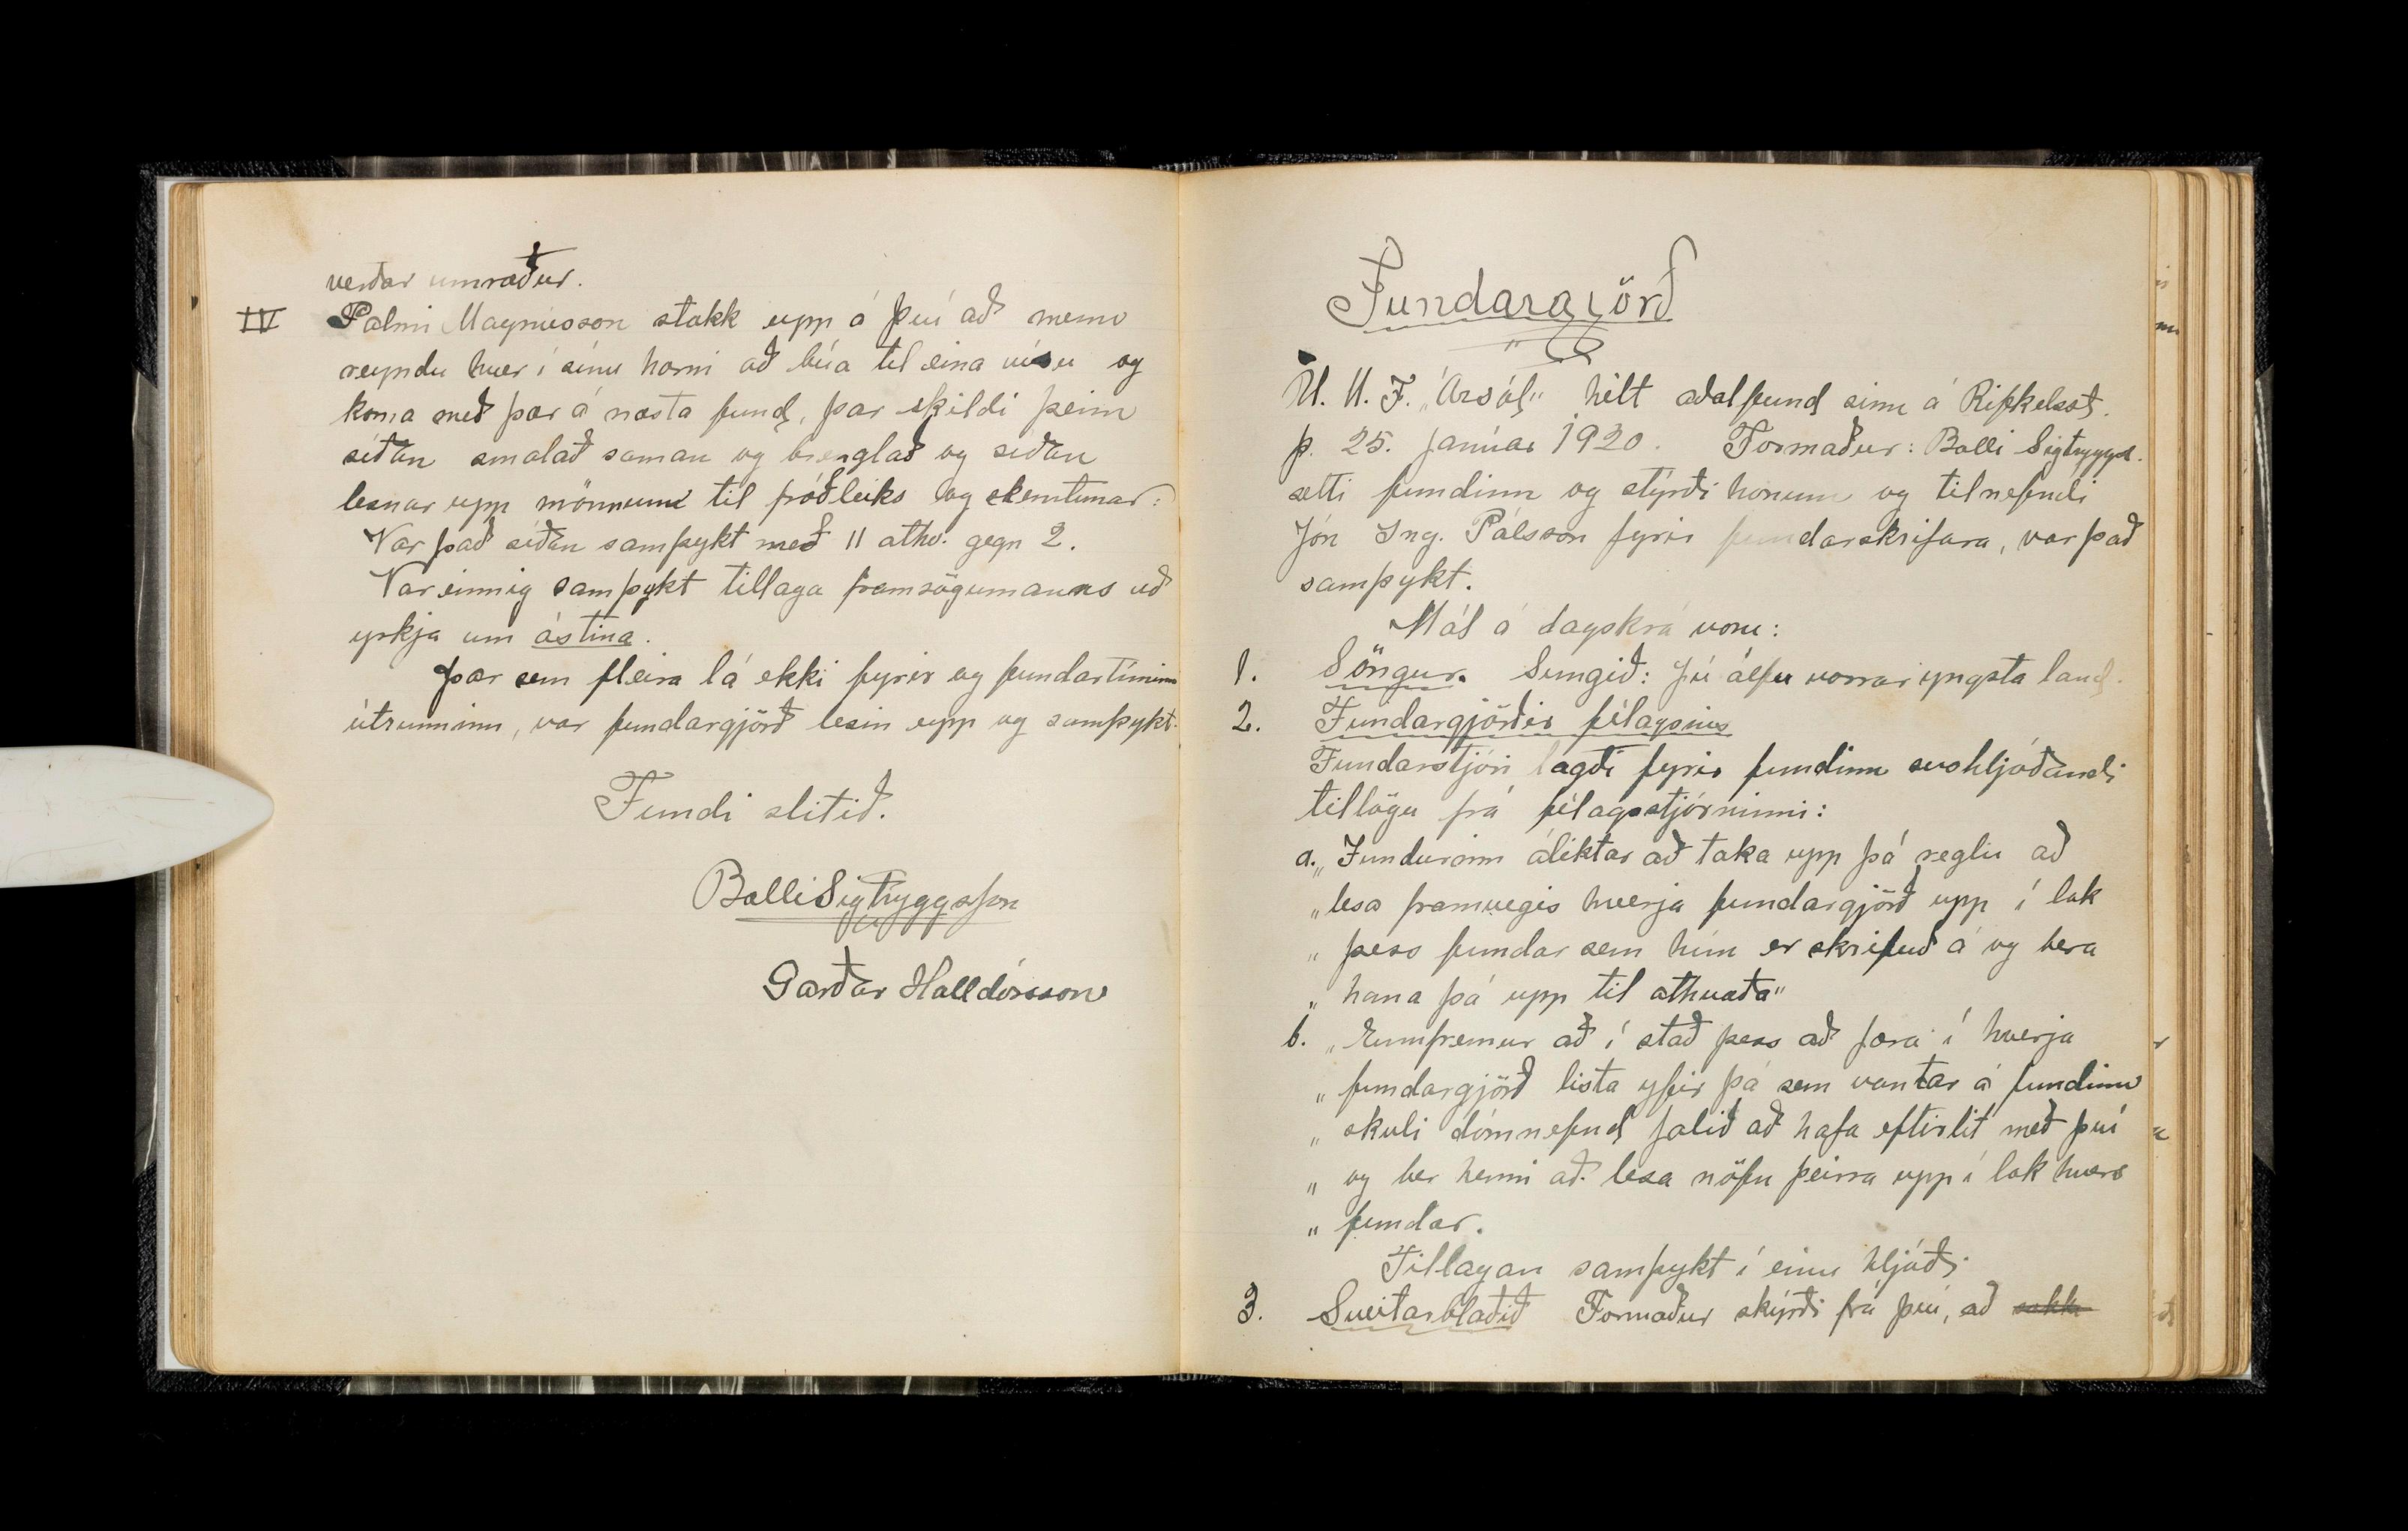 verðar umræður.
IV Palmi Magnússon stakk upp á því að menn
reyndu hver í sínu horni að búa til eina vísu og
koma með þær á næsta fund, þar skildi þeim
síðan smalað saman og brenglað og síðan
lesnar upp mönnum til fróðleiks og skemtunar:
Var það síðan samþykt með 11 atkv. gegn 2.
Var einnig samþykt tillaga framsögumanns að
yrkja um ástina.
Þar sem fleira lá ekki fyrir og fundartíminn
útrunninn, var fundargjörð lesin upp og samþykt.
Fundi slitið.
Balli Sigtryggsson
Garðar Halldórsson
Fundargjörð
U. M. F. "Ársól" hélt aðalfund sinn á Rifkelsst.
þ. 25. janúar 1920. Formaður: Balli Sigtryggs.
setti fundinn og stýrði honum og tilnefndi
Jón Ing. Pálsson fyrir fundarskrifara, var það
samþykt.
Mál á dagskrá voru:
1. Söngur. Sungið: Þú álfu vorrar yngsta land.
2. Fundargjörðir félagsins
Fundarstjóri lagði fyrir fundinn svohljóðandi
tillögu frá félagsstjórninni:
a. „Fundurinn áliktar að taka upp þá reglu að
„lesa framvegis hverja fundargjörð upp í lok
„ þess fundar sem hún er skrifuð á og bera
„ hana þá upp til atkvæða"
b. „Ennfremur að í stað þess að færa í hverja
„ fundargjörð lista yfir þá sem vantar á fundinn
„ skuli dómnefnd falið að hafa eftirlit með því
„ og ber henni að lesa nöfn þeirra upp í lok hvers
„ fundar.
Tillagan samþykt í einu hljóði.
3. Sveitarblaðið Formaður skýrði frá því, að